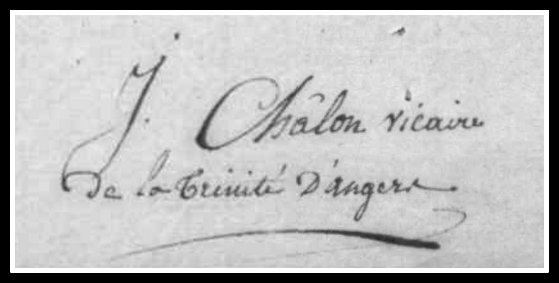 J. Châlon vicaire
de la trinité D'angers